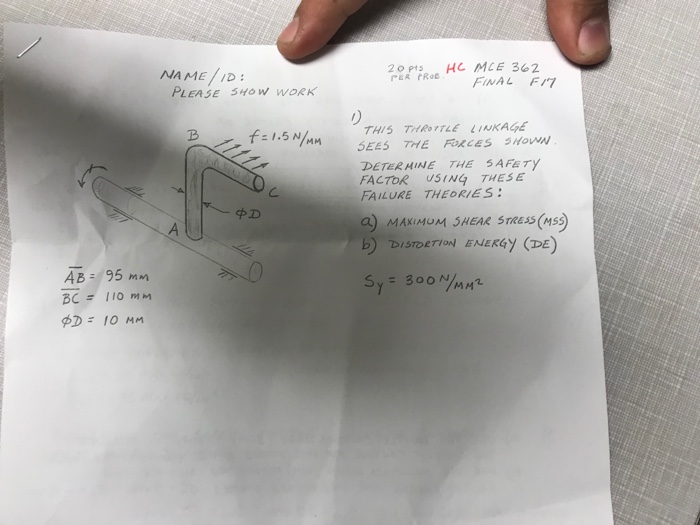 NAME/ID:
PLEASE SHOW WORK
20 PTS
PER PROB
HC MCE 362
FINAL F17
1)
THIS THROTTLE LINKAGE
SEES THE FORCES SHOWN.
DETERMINE THE SAFETY
FACTOR USING THESE
FAILURE THEORIES:
a) MAXIMUM SHEAR STRESS (MSS)
b) DISTORTION ENERGY (DE)
Sy = 300 N/MM²
B
f = 1.5 N/MM
C
ϕD
A
AB = 95 mm
BC = 110 mm
ϕD = 10 MM